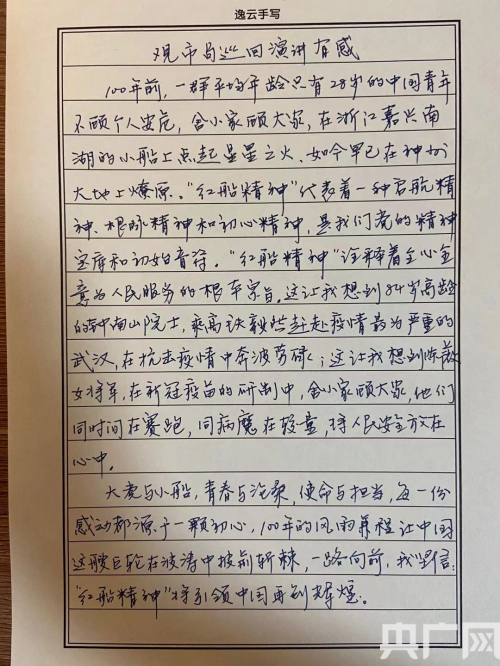 逸云手写
观市局巡回演讲有感
100年前，一群平均年龄只有28岁的中国青年
不顾个人安危，舍小家顾大家，在浙江嘉兴南
湖的小船上点起星星之火，如今早已在神州
大地上燎原。“红船精神”代表着一种启航精
神、根脉精神和初心精神，是我们党的精神
宝库和初始音符。“红船精神”诠释着全心全
意为人民服务的根本宗旨。这让我想到84岁高龄
的钟南山院士，乘高铁毅然赶赴疫情最为严重的
武汉，在抗击疫情中奔波劳碌；这让我想到陈薇
女将军，在新冠疫苗的研制中，舍小家顾大家，他们
同时间在赛跑，同病魔在较量，将人民安全放在
心中。
大党与小船，青春与沧桑，使命与担当，每一份
感动都源于一颗初心，100年的风雨兼程让中国
这艘巨轮在波涛中披荆斩棘，一路向前，我坚信：
“红船精神”将引领中国再创辉煌。
央广网